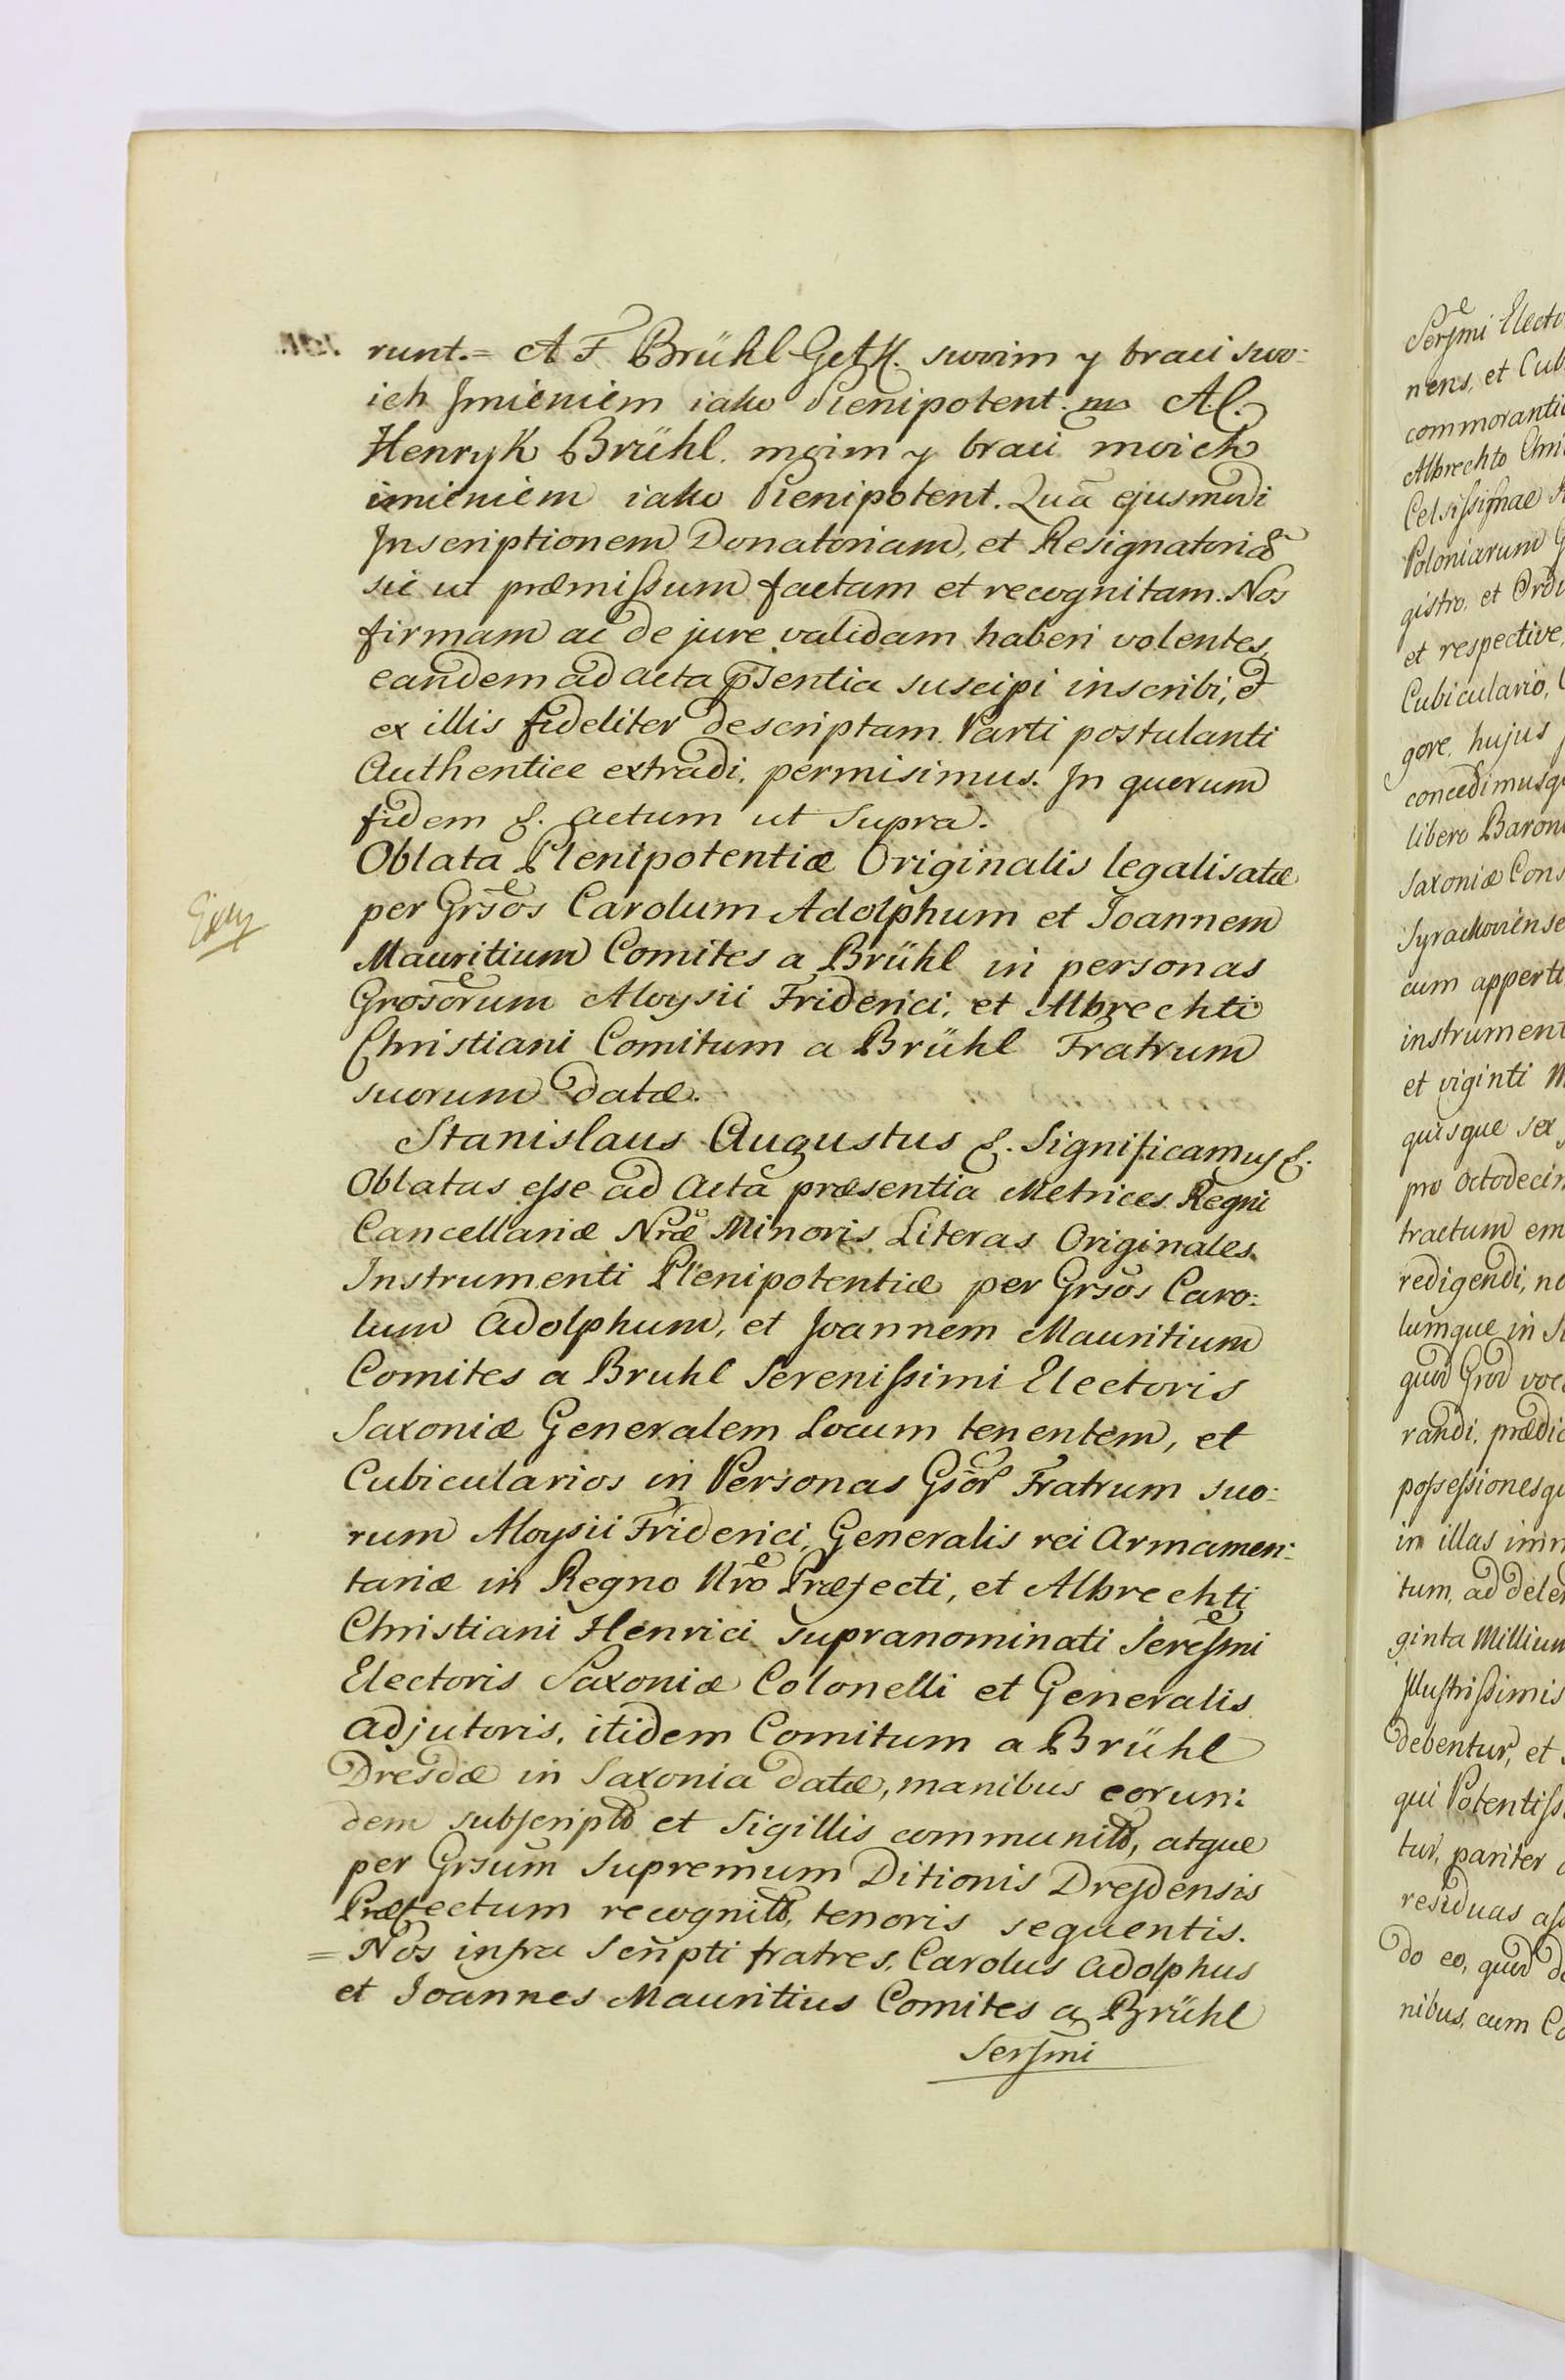 runt.= A F Brühl GetK. swoim y braci swo:
ich Jmieniem iako Plenipotent. mp A.C.
Henryk Brühl. moim y braci moich
imieniem iako Plenipotent. Quã ejusmodi
Jnscriptionem Donatoriam, et Resignatoriã
sic ut præmissum factam et recognitam. Nos
firmam ac de jure validam haberi volentes,
eandem ad acta p̃sentia suscipi inscribi, et
ex illis fideliter descriptam Parti postulanti
Authentice extradi, permisimus. Jn quorum
fidem &. actum ut supra.
Oblata Plenipotentiæ Originalis legalisatæ
per Grsos Carolum Adolphum et Joannem
Mauritium Comites a Brühl in personas
Grosorum Aloysii Friderici, et Albrechti
Christiani Comitum a Brühl Fratrum
suorum datæ.
Stanislaus Augustus &. Significamus &.
Oblatas esse ad Acta præsentia Metrices Regni
Cancellariæ Nræ Minoris Literas Originales
Instrumenti Plenipotentiæ per Grsos Caro:
lum Adolphum, et Joannem Mauritium
Comites a Bruhl Serenissimi Electoris
Saxoniæ Generalem Locum tenentem, et
Cubicularios in Personas Gsor Fratrum suo:
rum Aloysii Friderici, Generalis rei Armamen:
tariæ in Regno Nro Præfecti, et Albrechti
Christiani Henrici supranominati Seresmi
Electoris Saxoniæ Colonelli et Generalis
Adjutoris, itidem Comitum a Brühl
Dresdæ in Saxonia datæ, manibus eorun:
dem subscriptæ et Sigillis communitæ, atque
per Grsum Supremum Ditionis Dresdensis
Præfectum recognitæ, tenoris sequentis.
= Nos infra scripti fratres, Carolus Adolphus
et Joannes Mauritius Comites a Brühl
Sersmi
Sersmi Electo
nens, et Cub
commoranti
Albrechto Chri
Celsissimae R
Poloniarum G
gistro, et Ordi
et respective
Cubiculario, C
gore, hujus
concedimusq
libero Baron
Saxoniæ Cons
Syrackoviense
cum apperti
instrument
et viginti M
quisque sex
pro Octodecim
tractum em
redigendi, no
lumque in S
quod Grod voc
randi, prædic
possessionesqu
in illas imm
tum, ad delen
ginta Millium
Jllustrissimis
debentur, et
qui Potentiss
tur, pariter
residuas ass
do eo, quod d
nibus, cum Co